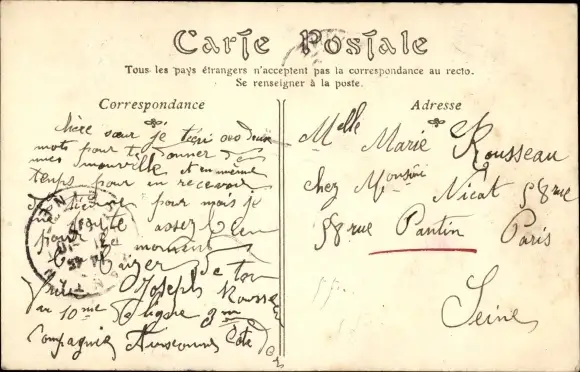 Carte Postale
Tous les pays étrangers n'acceptent pas la correspondance au recto.
Se renseigner à la poste.
Correspondance
Adresse
Chère sœur je deux
mots pour te donner de
mes et en même
temps pour en recevoir
pour mois je
me porte assez bien
pour le moment
Baizer de ton
Joseph Rousseau
au 10me de ligne 3me
Compagnie Auxonne Cote
d'or
Melle Marie Rousseau
chez Nicat 58 rue
58 rue Pantin Paris
Seine